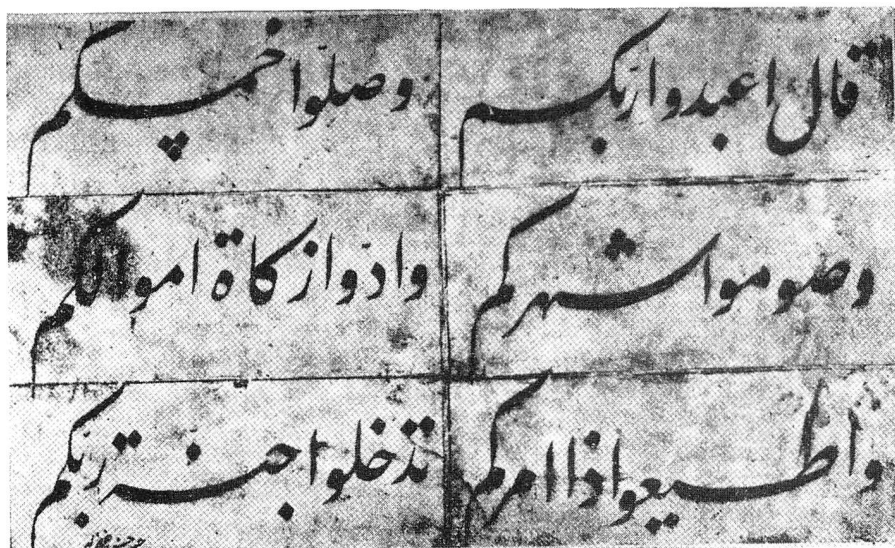 قال اعبدوا ربّكم
وصلّوا خمسكم
وصوموا شهركم
وادّوا زكاة اموالكم
وأطيعوا ذا امركم
تدخلوا جنة ربّكم